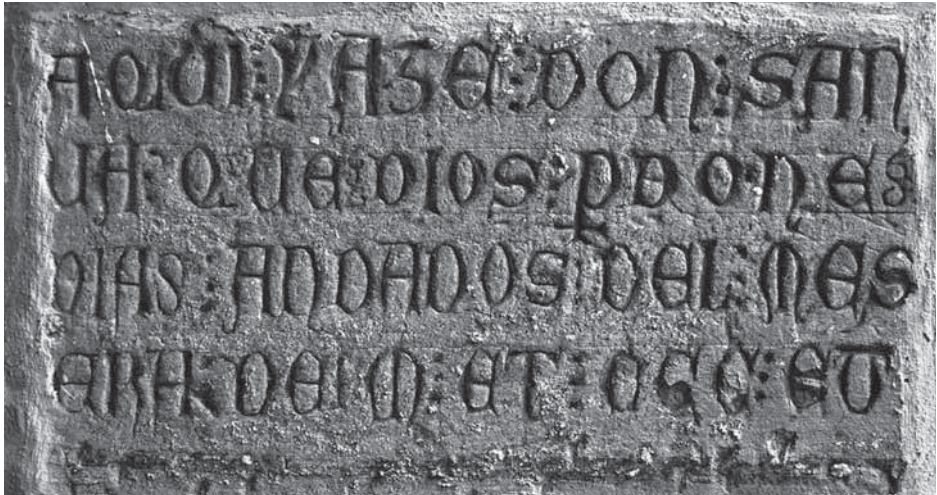 AQUI : YAZE : DON : SAN
UA : QUE : DIOS : PDONE
DIAS : ANDADOS DEL : MES
ERA : DE : M : ET : CCC : ET